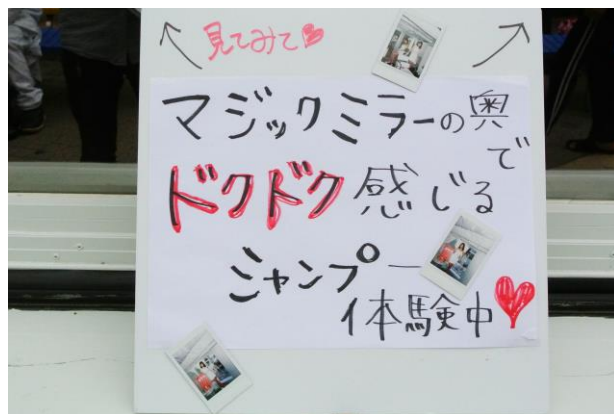 見てみて
マジックミラーの奥で
ドクドク感じる
シャンプー
体験中